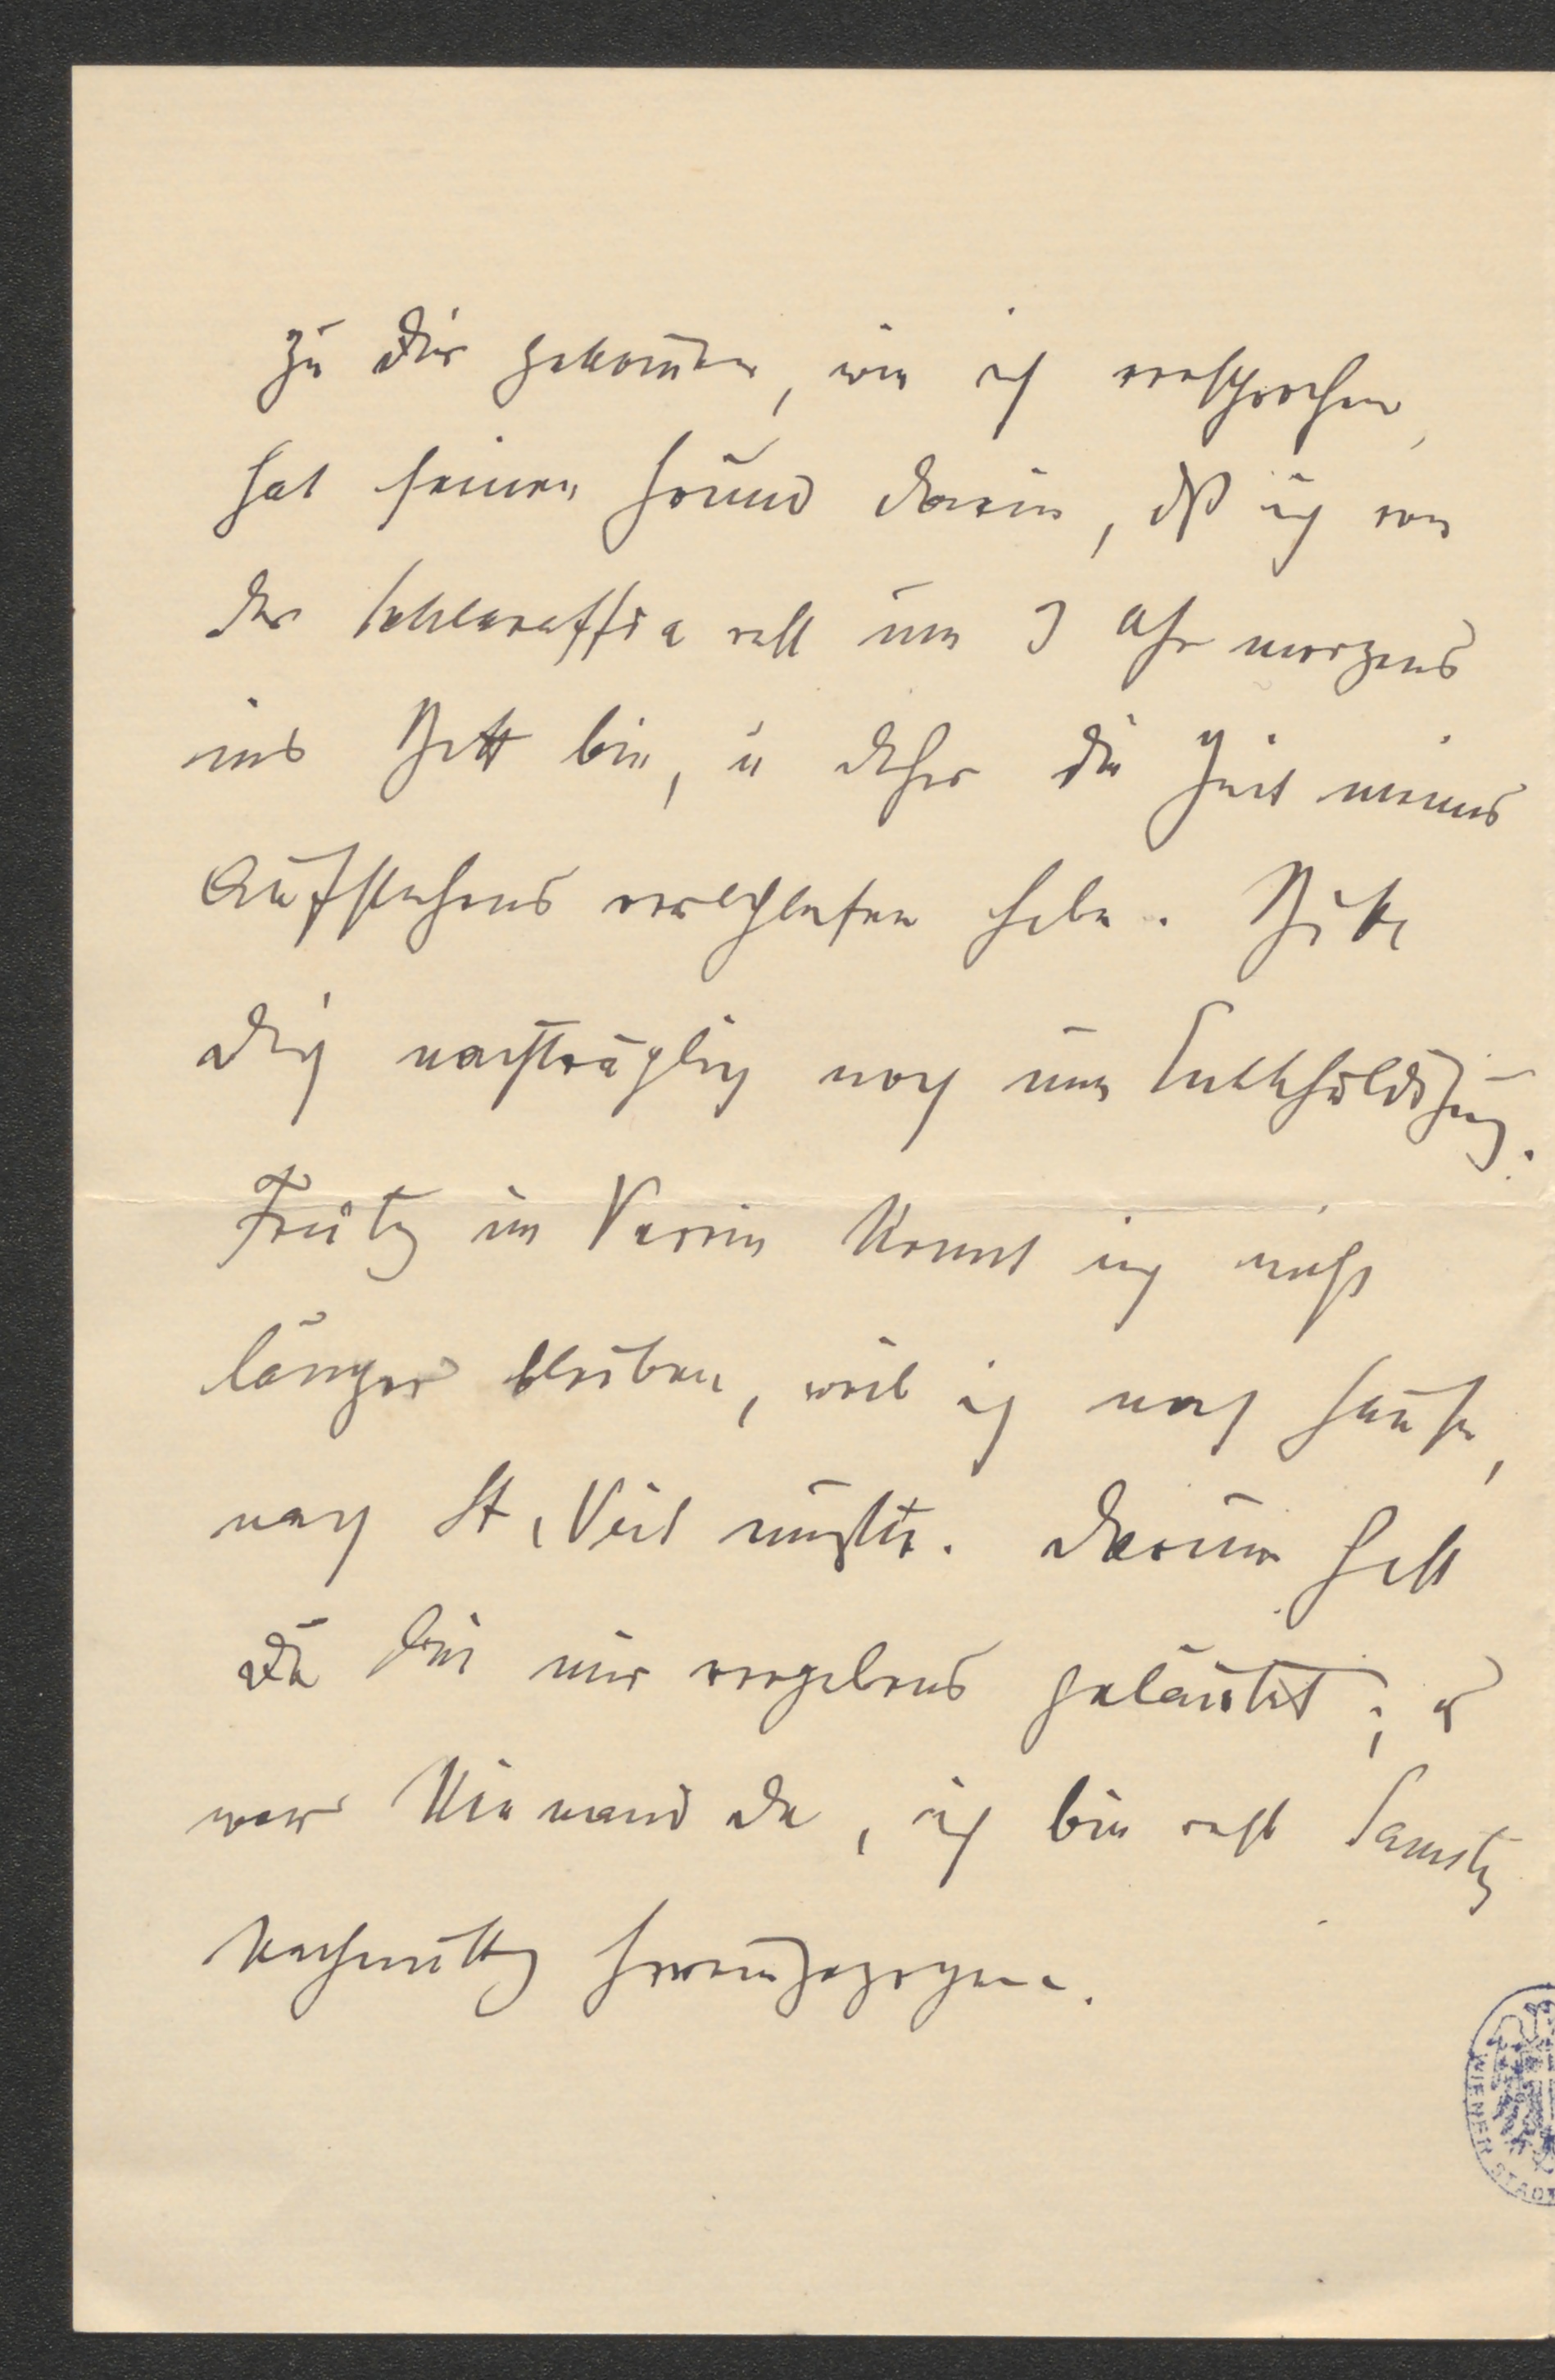 zu Dir gekom̄en, wie ich versprochen,
hat seinen Grund darin, dß ich von
der Schlaraffia erst um 3 Uhr morgens
ins Bett bin, u daher die Zeit meines
Aufstehens verschlafen habe. Bitte
Dich nachträglich noch um Entschuldigung.
Freitag im Verein konnt ich nicht
länger bleiben, weil ich nach Hause,
nach St. Veit mußte. Darum hast
Du bei mir vergebens geläutet; es
war Niemand da, ich bin erst Samstag
Nachmittag hereingezogen.
WIENER STADT